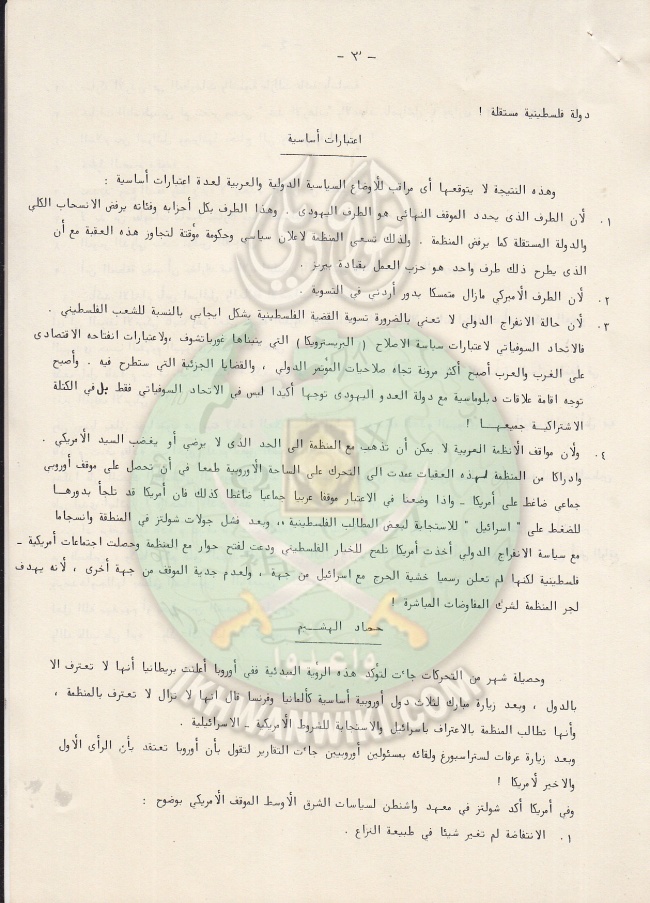 - ٣ -
دولة فلسطينية مستقلة !
اعتبارات أساسية
وهذه النتيجة لا يتوقعها أى مراقب للأوضاع السياسية الدولية والعربية لعدة اعتبارات أساسية :
١. لأن الطرف الذى يحدد الموقف النهائي هو الطرف اليهودى . وهذا الطرف بكل أحزابه وفئاته يرفض الانسحاب الكلى
والدولة المستقلة كما يرفض المنظمة . ولذلك تسعى المنظمة لاعلان سياسي وحكومة مؤقتة لتجاوز هذه العقبة مع أن
الذى يطرح ذلك طرف واحد هو حزب العمل بقيادة بيريز .
٢. لأن الطرف الأميركي مازال متمسكا بدور أردني في التسوية .
٣. لأن حالة الانفراج الدولي لا تعني بالضرورة تسوية القضية الفلسطينية بشكل ايجابي بالنسبة للشعب الفلسطيني .
فالاتحاد السوفياتي لاعتبارات سياسة الاصلاح ( البريسترويكا ) التي يتبناها غورباتشوف ،ولاعتبارات انفتاحه الاقتصادى
على الغرب والعرب أصبح أكثر مرونة تجاه صلاحيات المؤتمر الدولي ، والقضايا الجزئية التي ستطرح فيه . وأصبح
توجه اقامة علاقات دبلوماسية مع دولة العدو اليهودى توجها أكيدا ليس في الاتحاد السوفياتي فقط بل في الكتلة
الاشتراكية جميعها !
٤. ولأن مواقف الأنظمة العربية لا يمكن أن تذهب مع المنظمة الى الحد الذى لا يرضي أو يغضب السيد الأمريكي .
وادراكا من المنظمة لهذه العقبات عمدت الى التحرك على الساحة الأوروبية طمعا في أن تحصل على موقف أوروبي
جماعي ضاغط على أمريكا - واذا وضعنا في الاعتبار موقفا عربيا جماعيا ضاغطا كذلك فان أمريكا قد تلجأ بدورها
للضغط على " اسرائيل " للاستجابة لبعض المطالب الفلسطينية ،، وبعد فشل جولات شولتز في المنطقة وانسجاما
مع سياسة الانفراج الدولي أخذت أمريكا تلمح للخيار الفلسطيني ودعت لفتح حوار مع المنظمة وحصلت اجتماعات أمريكية -
فلسطينية لكنها لم تعلن رسميا خشية الحرج مع اسرائيل من جهة ، ولعدم جدية الموقف من جهة أخرى ، لأنه يهدف
لجر المنظمة لشرك المفاوضات المباشرة !
حصاد الهشيم
وحصيلة شهر من التحركات جاءت لتؤكد هذه الرؤية المبدئية ففي أوروبا أعلنت بريطانيا أنها لا تعترف الا
بالدول ، وبعد زيارة مبارك لثلاث دول أوروبية أساسية كألمانيا وفرنسا قال انها لا تزال لا تعترف بالمنظمة ،
وأنها تطالب المنظمة بالاعتراف باسرائيل والاستجابة للشروط الأمريكية - الاسرائيلية .
وبعد زيارة عرفات لستراسبورغ ولقائه بمسئولين أوروبيين جاءت التقارير لتقول بأن أوروبا تعتقد بأن الرأى الأول
والاخير لأمريكا !
وفي أمريكا أكد شولتز في معهد واشنطن لسياسات الشرق الأوسط الموقف الأمريكي بوضوح :
١. الانتفاضة لم تغير شيئا في طبيعة النزاع .
واعدوا
IKHWANWIKI.COM